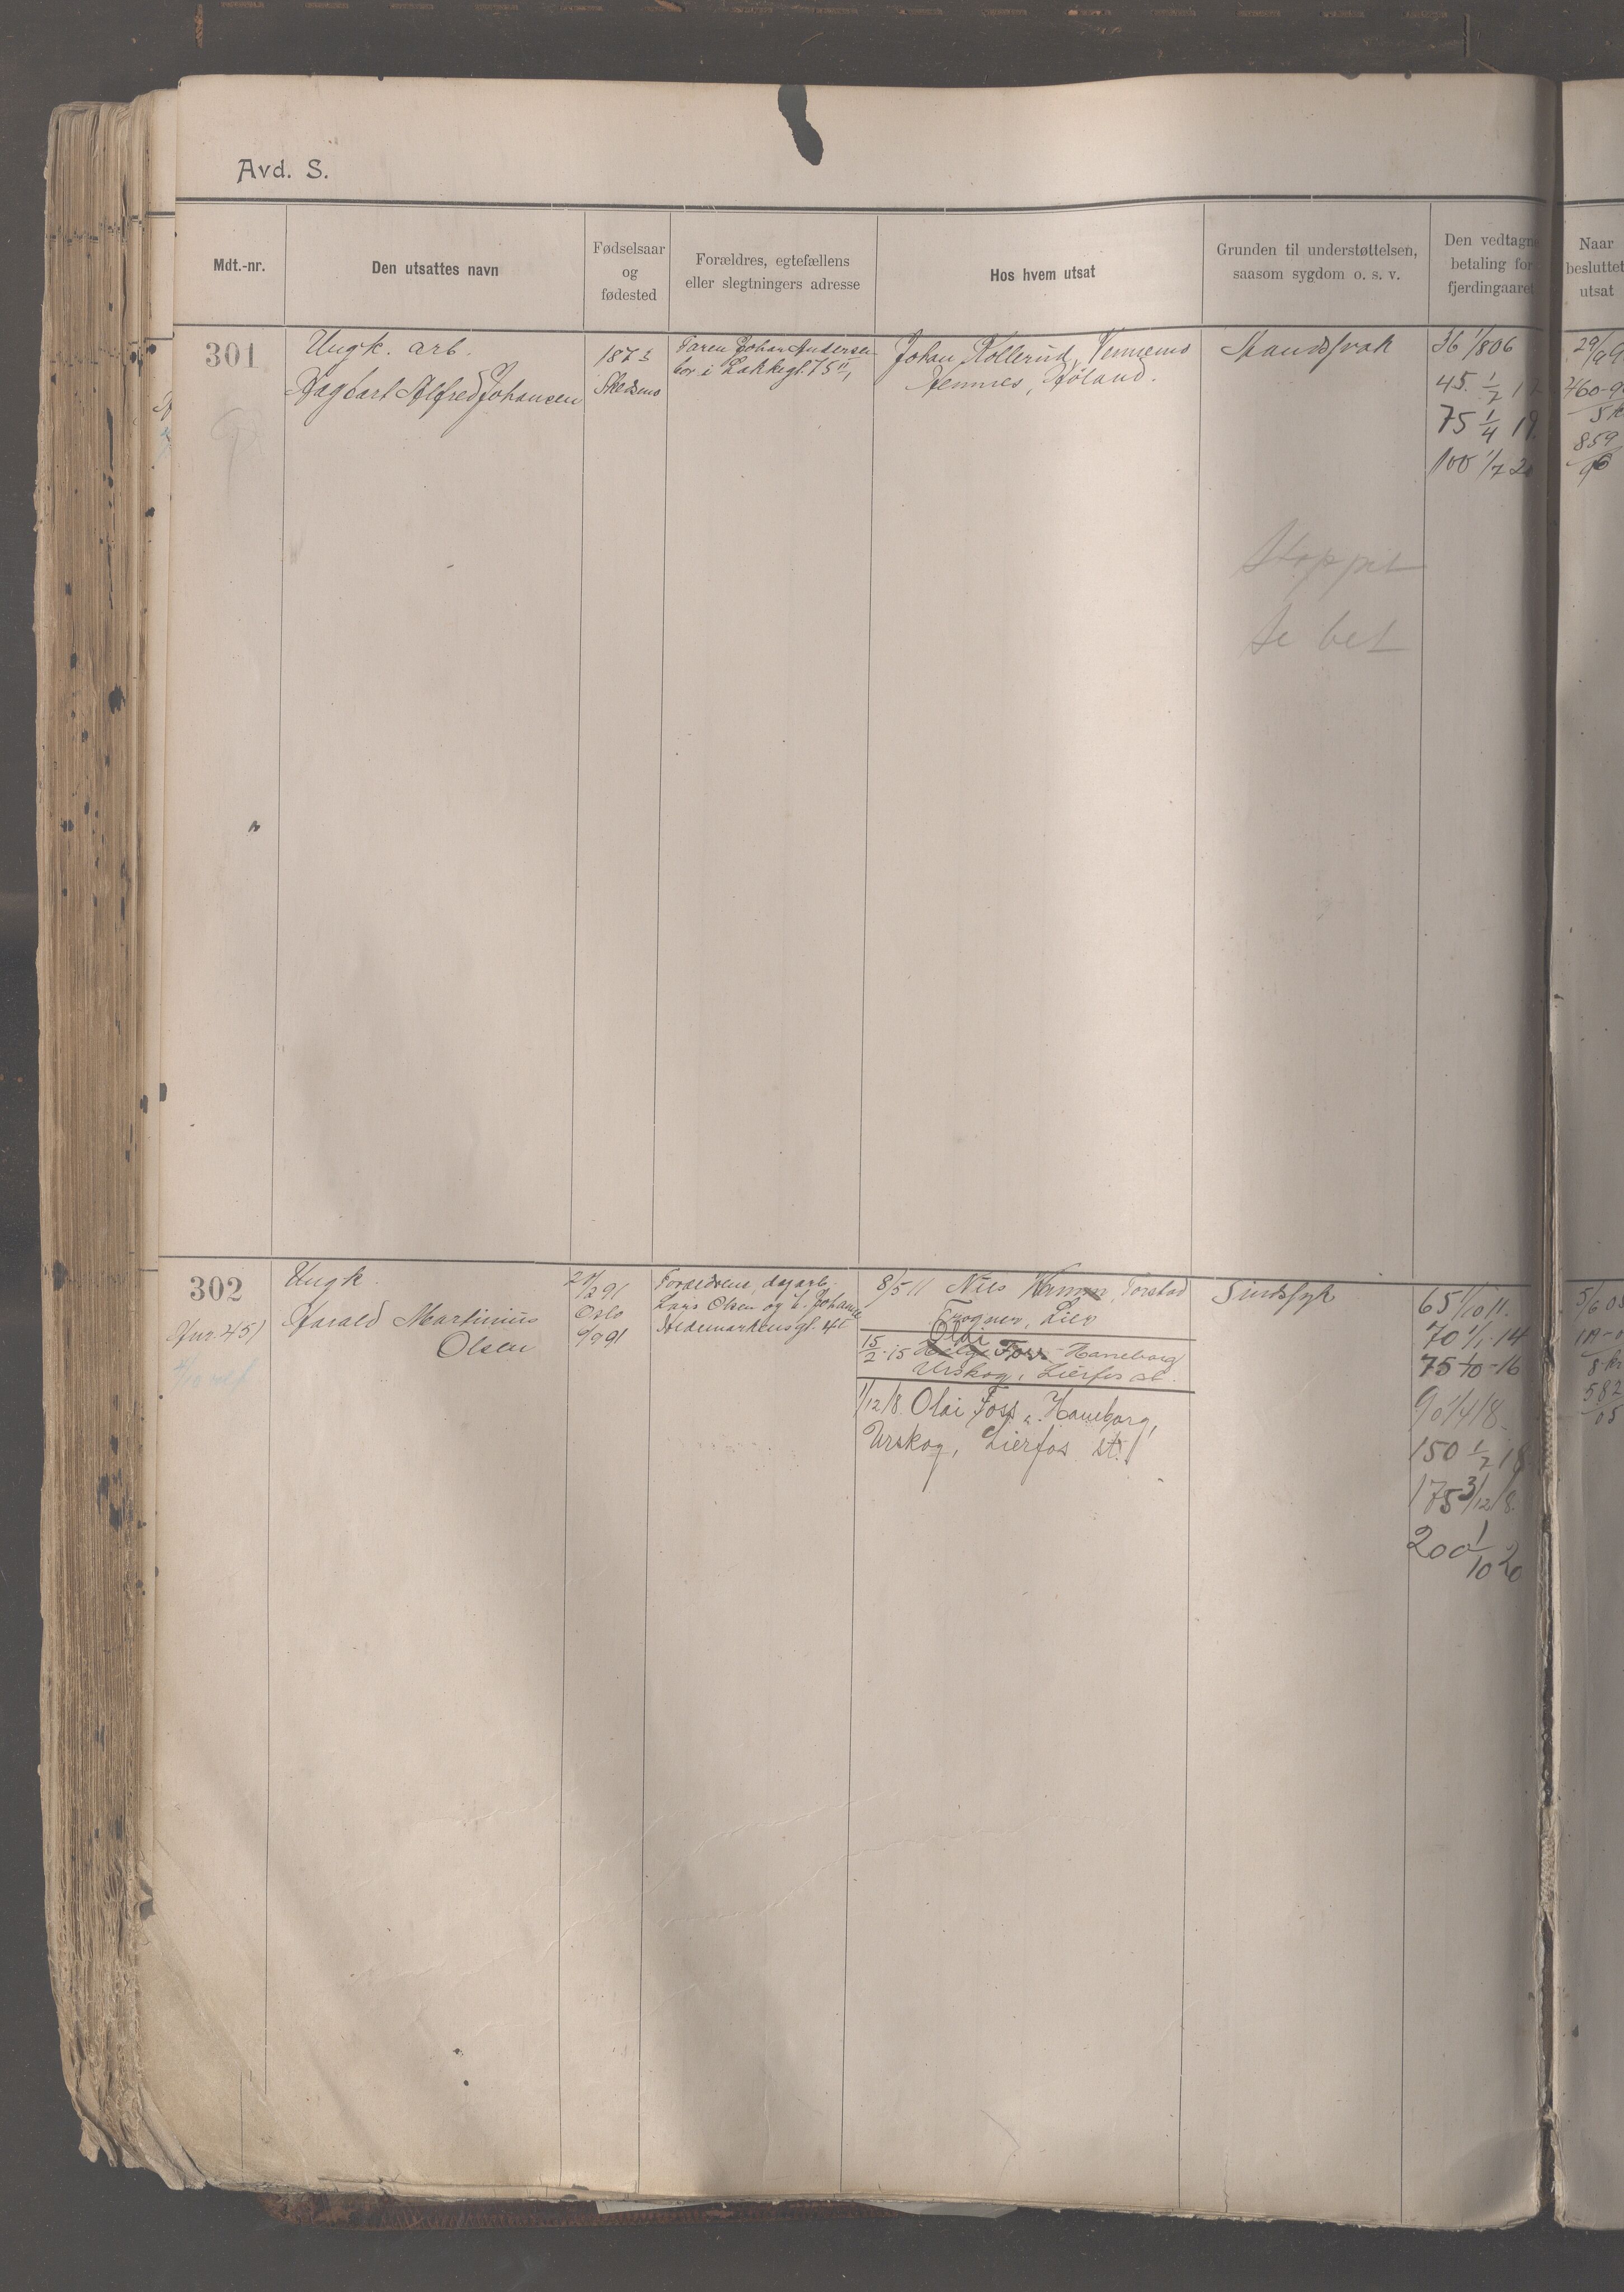 Avd. S.
Mdt.-nr.
Den utsattes navn
Fødselsaar
og
fødested
Forældres, egtefællens
eller slegtningers adresse
Hos hvem utsat
Grunden til understøttelsen,
saasom sygdom o. s. v.
Den vedtagne
betaling for
fjerdingaaret
Naar
besluttet
utsat
301
Ungk. arb.
Hagbart Alfred Johansen
1873
Skedsmo
Faren Johan Andersen
bor i Lakkegt. 75 II,
Johan Kollerud, Tennemo
Hemnes, Høland.
Aandssvak
36 1/8 06
45. 1/7 17
75 1/4 19
100 1/7 20
29/
460-9
5 k
859
96
Stoppet
Se bet
302
Ungk.
Harald Martinius
Olsen
Hnr. 451
21/2 91
Oslo
9/9 91
Forældrene, dagarb.
Lars Olsen og L. Johanne
Hedemarkensgt. 4
8/5 11 Nils Torstad
Frogner, Lier
Olai
15/2-15 Helge Foss Haneborg
Urskog, Lierfos st.
1/12 18. Olai Foss, Haneborg,
Urskog, Lierfos st.
Sindssyk
65 1/10 11.
70 1/1-14
75 1/10-16
90 1/4 18
150 1/7 18
175 3/12 18
200 1/10 20
5/6 05
8 kr
582
05